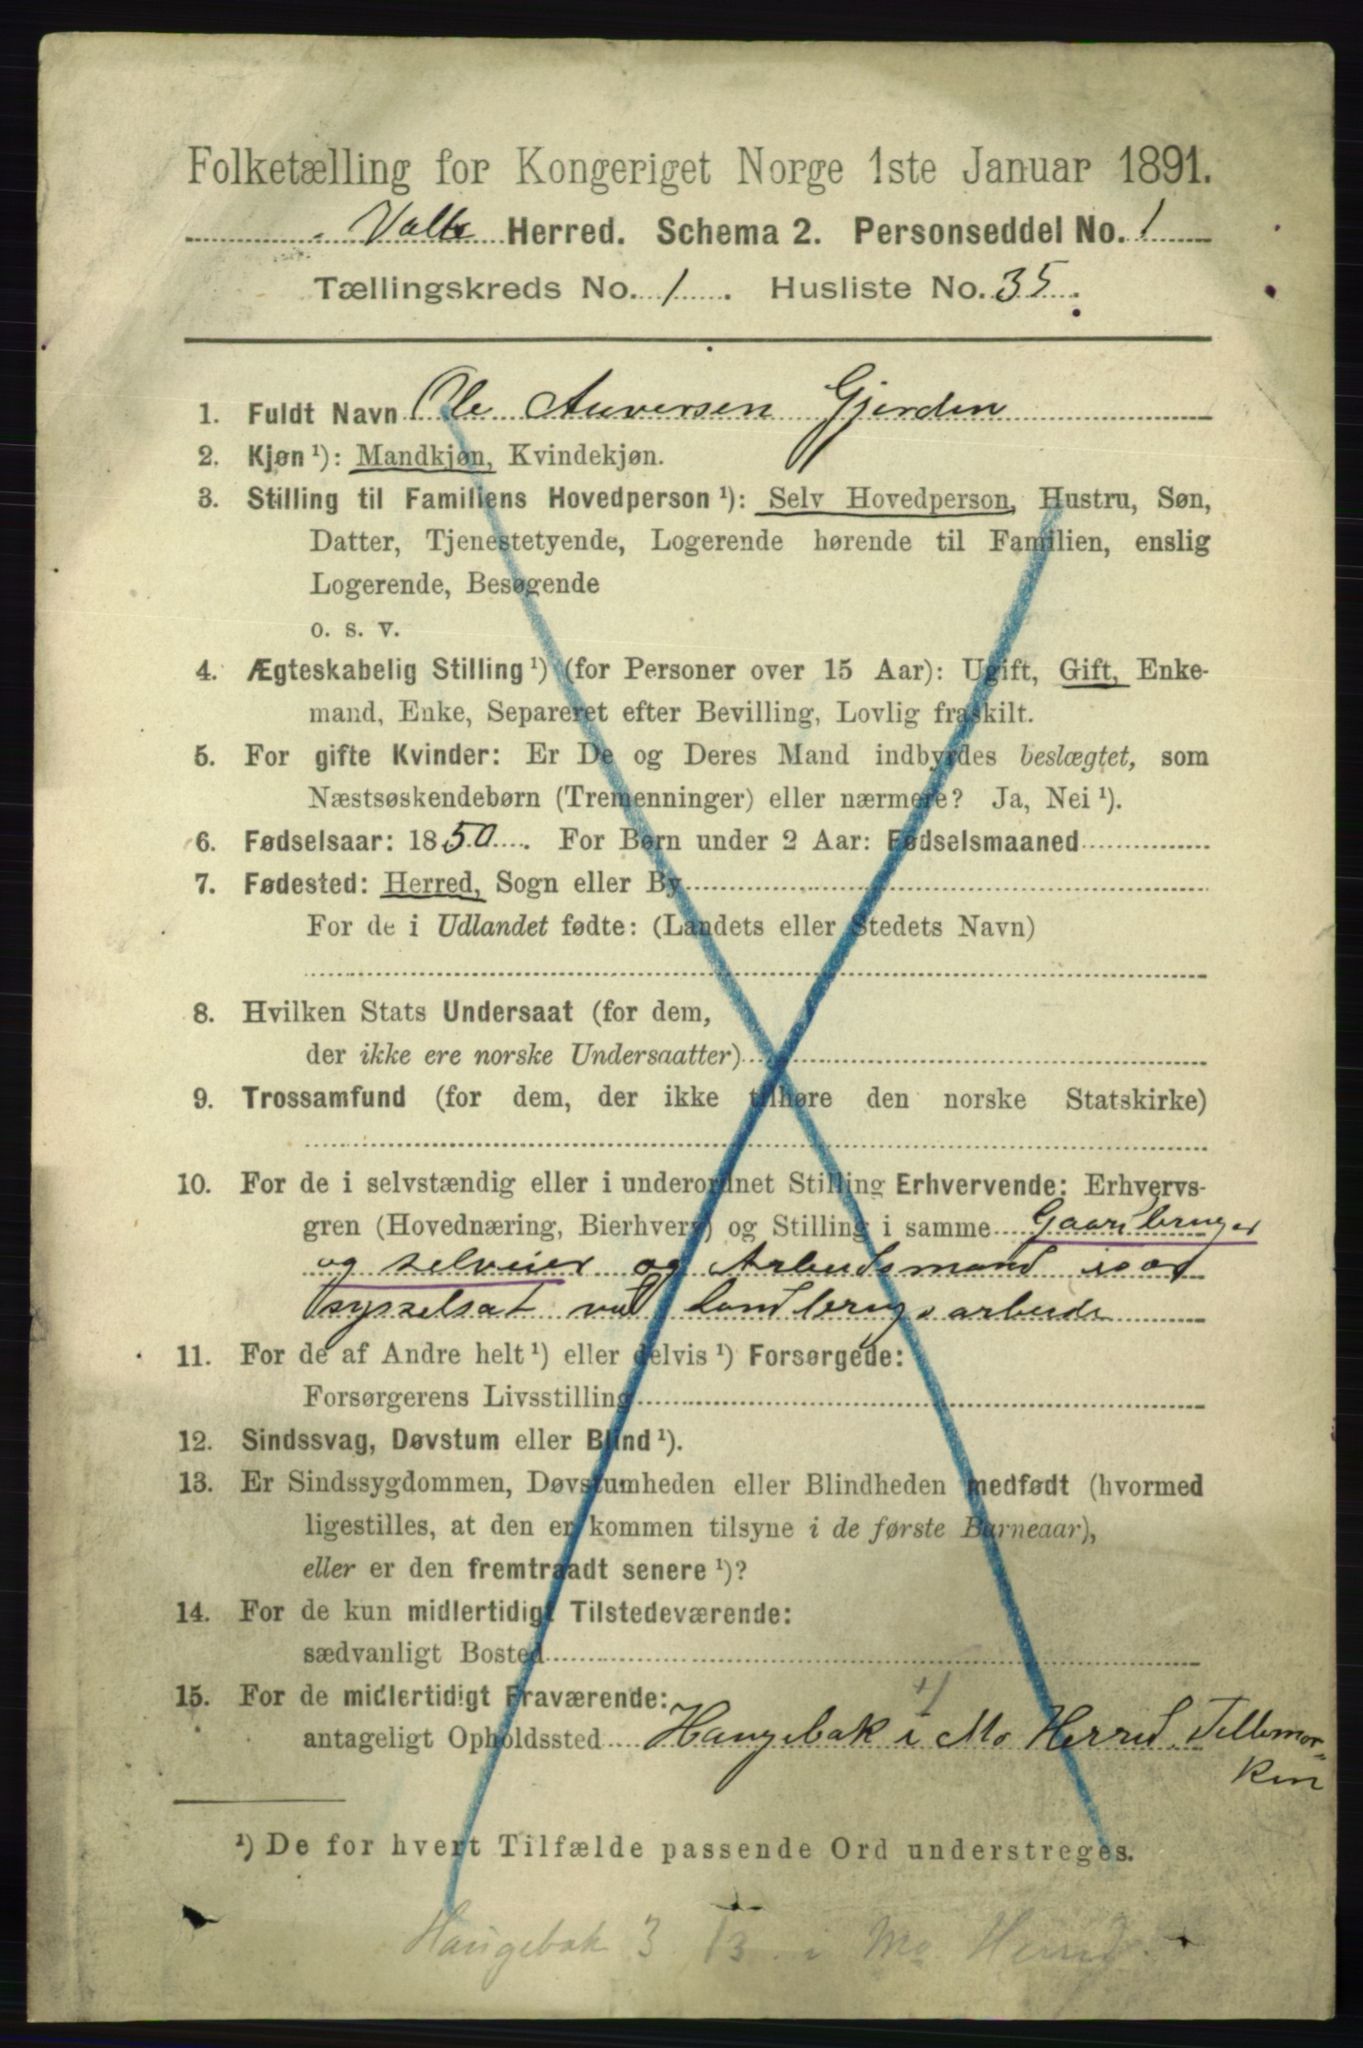 Folketælling for Kongeriget Norge 1ste Januar 1891.
Valle Herred. Schema 2. Personseddel No. 1
Tællingskreds No. 1. Husliste No. 35.
1. Fuldt Navn Ole Auversen Gjerden
2. Kjøn ¹): Mandkjøn, Kvindekjøn.
3. Stilling til Familiens Hovedperson ¹): Selv Hovedperson, Hustru, Søn,
Datter, Tjenestetyende, Logerende hørende til Familien, enslig
Logerende, Besøgende
o. s. v.
4. Ægteskabelig Stilling ¹) (for Personer over 15 Aar): Ugift, Gift, Enke-
mand, Enke, Separeret efter Bevilling, Lovlig fraskilt.
5. For gifte Kvinder: Er De og Deres Mand indbyrdes beslægtet, som
Næstsøskendebørn (Tremenninger) eller nærmere? Ja, Nei ¹).
6. Fødselsaar: 1850. For Børn under 2 Aar: Fødselsmaaned
7. Fødested: Herred, Sogn eller By
For de i Udlandet fødte: (Landets eller Stedets Navn)
8. Hvilken Stats Undersaat (for dem,
der ikke ere norske Undersaatter)
9. Trossamfund (for dem, der ikke tilhøre den norske Statskirke)
10. For de i selvstændig eller i underordnet Stilling Erhvervende: Erhvervs-
gren (Hovednæring, Bierhverv) og Stilling i samme Gaardbruger
og selveier og Arbeidsmand
sysselsat ved Landbrugsarbeide
11. For de af Andre helt ¹) eller delvis ¹) Forsørgede:
Forsørgerens Livsstilling
12. Sindssvag, Døvstum eller Blind ¹).
13. Er Sindssygdommen, Døvstumheden eller Blindheden medfødt (hvormed
ligestilles, at den er kommen tilsyne i de første Barneaar),
eller er den fremtraadt senere ¹)?
14. For de kun midlertidigt Tilstedeværende:
sædvanligt Bosted
15. For de midlertidigt Fraværende:
antageligt Opholdssted Haugebak i Mo Herred. Tellemar-
ken
¹) De for hvert Tilfælde passende Ord understreges.
Haugebak 3 13 i Mo Herred